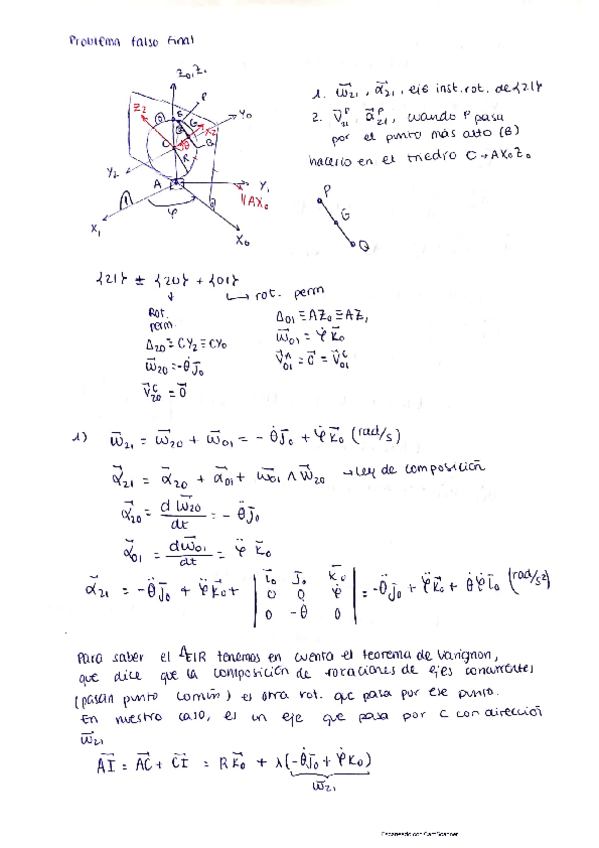 Problema falso final
Z0,Z1
Z2
P
E
G
X2
Y0
θ
C
Q
R
Y2
A
Y1
// AX0
φ
X1
X0
1. ω⃗21, α⃗21, eje inst. rot. de {21}
2. V⃗21^P, a⃗21^P, cuando P pasa
por el punto más alto (E)
hacerlo en el triedro C→AX0Z0
P
G
Q
{21} ≡ {20} + {01}
Rot. perm.
Δ20 ≡ CY2 ≡ CY0
ω⃗20 = -θ̇ j⃗0
V⃗20^C = 0⃗
rot. perm
Δ01 ≡ AZ0 ≡ AZ1
ω⃗01 = φ̇ k⃗0
V⃗01^A = 0⃗ = V⃗01^C
1) ω⃗21 = ω⃗20 + ω⃗01 = -θ̇ j⃗0 + φ̇ k⃗0 (rad/s)
α⃗21 = α⃗20 + α⃗01 + ω⃗01 ∧ ω⃗20 → Ley de composición
α⃗20 = dω⃗20/dt = -θ̈ j⃗0
α⃗01 = dω⃗01/dt = φ̈ k⃗0
α⃗21 = -θ̈ j⃗0 + φ̈ k⃗0 + | i⃗0 j⃗0 k⃗0 ; 0 0 φ̇ ; 0 -θ̇ 0 | = -θ̈ j⃗0 + φ̈ k⃗0 + θ̇φ̇ i⃗0 (rad/s²)
Para saber el ΔEIR tenemos en cuenta el teorema de Varignon,
que dice que la composición de rotaciones de ejes concurrentes
(pasan punto común) es otra rot. que pasa por ese punto.
En nuestro caso, es un eje que pasa por C con dirección
ω⃗21
AI = AC + CI = R k⃗0 + λ(-θ̇ j⃗0 + φ̇ k⃗0)
ω⃗21
Escaneado con CamScanner